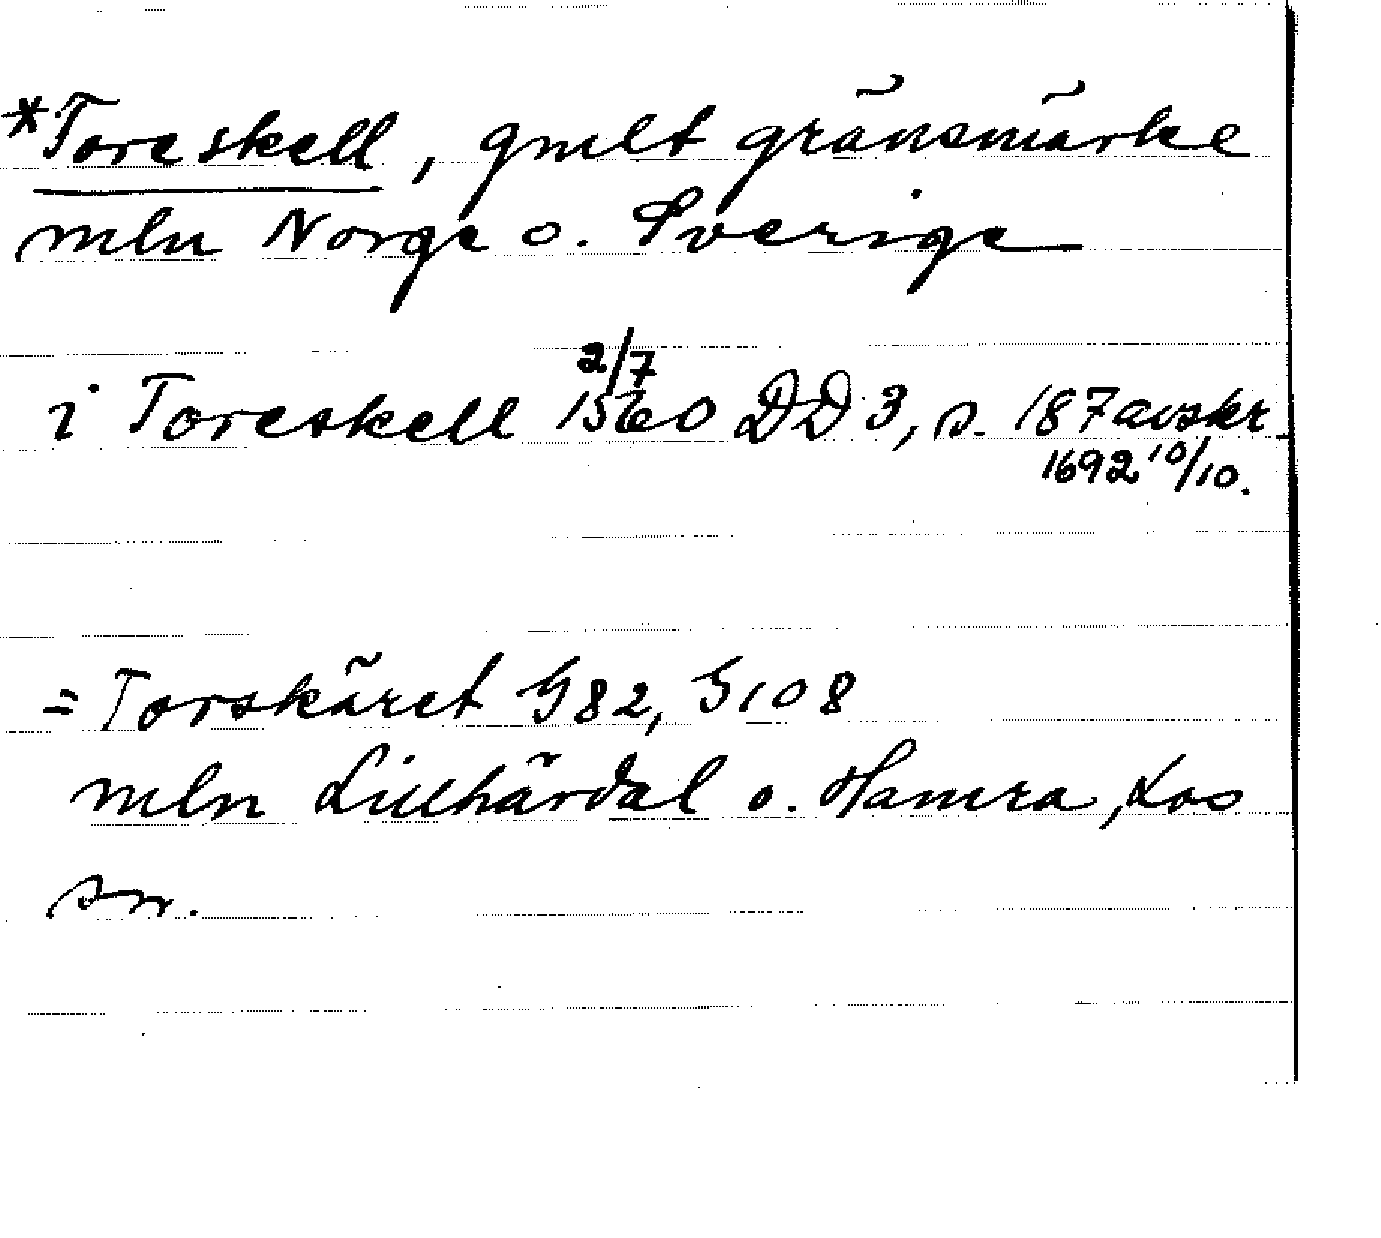 *Toreskell, gmlt gränsmärke
mln Norge o. Sverige
i Toreskell 1560 2/7 DD 3, s. 187 avskr.
1692 10/10.
= Torskäret G82, G108
mln Lillhärdal o. Hamra, Los
snr.